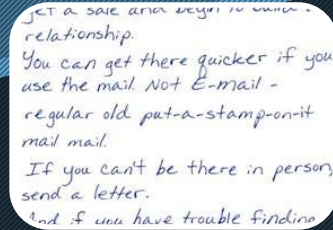 get a sale and begin to build a
relationship.
You can get there quicker if you
use the mail. Not E-mail -
regular old put-a-stamp-on-it
mail mail.
If you can't be there in person,
send a letter.
And if you have trouble finding